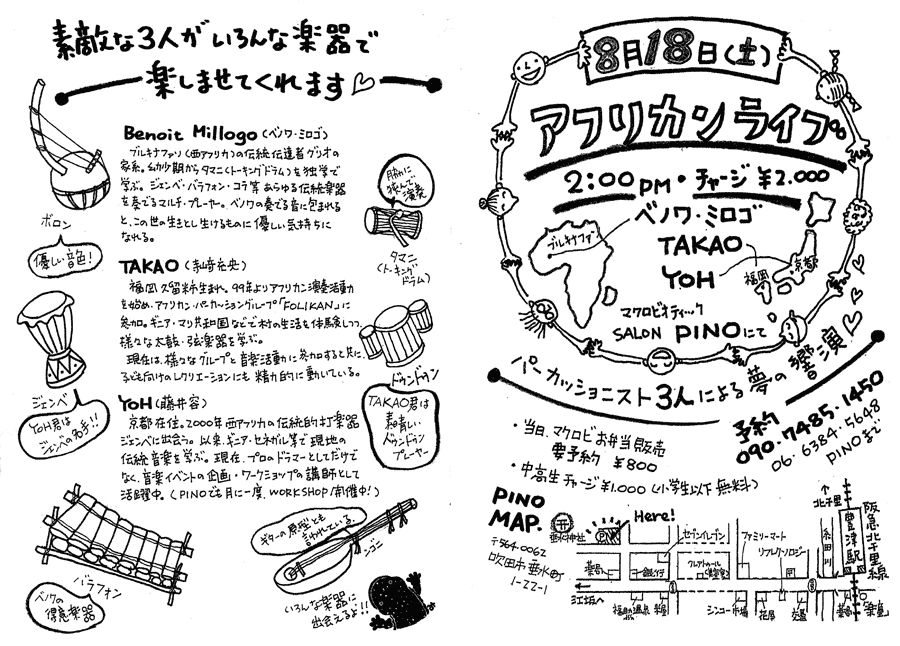 素敵な3人がいろんな楽器で
楽しませてくれます♡
Benoit Millogo (ベノワ・ミロゴ)
ブルキナファソ(西アフリカ)の伝統伝達者グリオの
家系。幼少期からタマニ(トーキングドラム)を独学で
学ぶ。ジェンベ・バラフォン・コラ等あらゆる伝統楽器
を奏でるマルチ・プレーヤー。ベノワの奏でる音に包まれる
と、この世の生きとし生けるものに優しい気持ちに
なれる。
ボロン
優しい音色!
脇に
挟んで
演奏
タマニ
(トーキング
ドラム)
TAKAO
福岡久留米生まれ。99年よりアフリカン演奏活動
を始め、アフリカン・パーカッショングループ「FOLIKAN」に
参加。ギニア・マリ共和国などで村の生活を体験しつつ、
様々な太鼓・弦楽器を学ぶ。
現在は、様々なグループと音楽活動に参加すると共に、
子ども向けのレクリエーションにも精力的に動いている。
ジェンベ
YOH君は
ジェンベの名手!!
ドゥンドゥン
TAKAO君は
素晴しい
ドゥンドゥン
プレーヤー
YoH (藤井容)
京都在住。2000年西アフリカの伝統的打楽器
ジェンベに出会う。以来、ギニア・セネガル等で現地の
伝統音楽を学ぶ。現在、プロのドラマーとしてだけで
なく、音楽イベントの企画・ワークショップの講師として
活躍中。(PINOでも月に一度、WORKSHOP開催中!)
バラフォン
ベノワの
得意楽器
ギターの原型とも
言われている。
ンゴニ
いろんな楽器に
出会えるよ!!
8月18日(土)
アフリカンライブ
2:00PM・チャージ¥2.000
ベノワ・ミロゴ
ブルキナファソ
TAKAO
YoH
福岡
京都
マクロビオティック
SALON PINOにて
パーカッショニスト3人による夢の響演
・当日、マクロビお弁当販売
要予約 ¥800
・中高生チャージ¥1.000(小学生以下無料)
予約
090・7485・1450
06・6384・5648
PINOまで
PINO
MAP.
〒564-0062
吹田市垂水町
1-22-1
垂水神社
PINO
Here!
セブンイレブン
ファミリーマート
リフレクソロジー
薬局
銀行
江坂へ
シンコー市場
花屋
交番
北千里
豊津駅
阪急北千里線